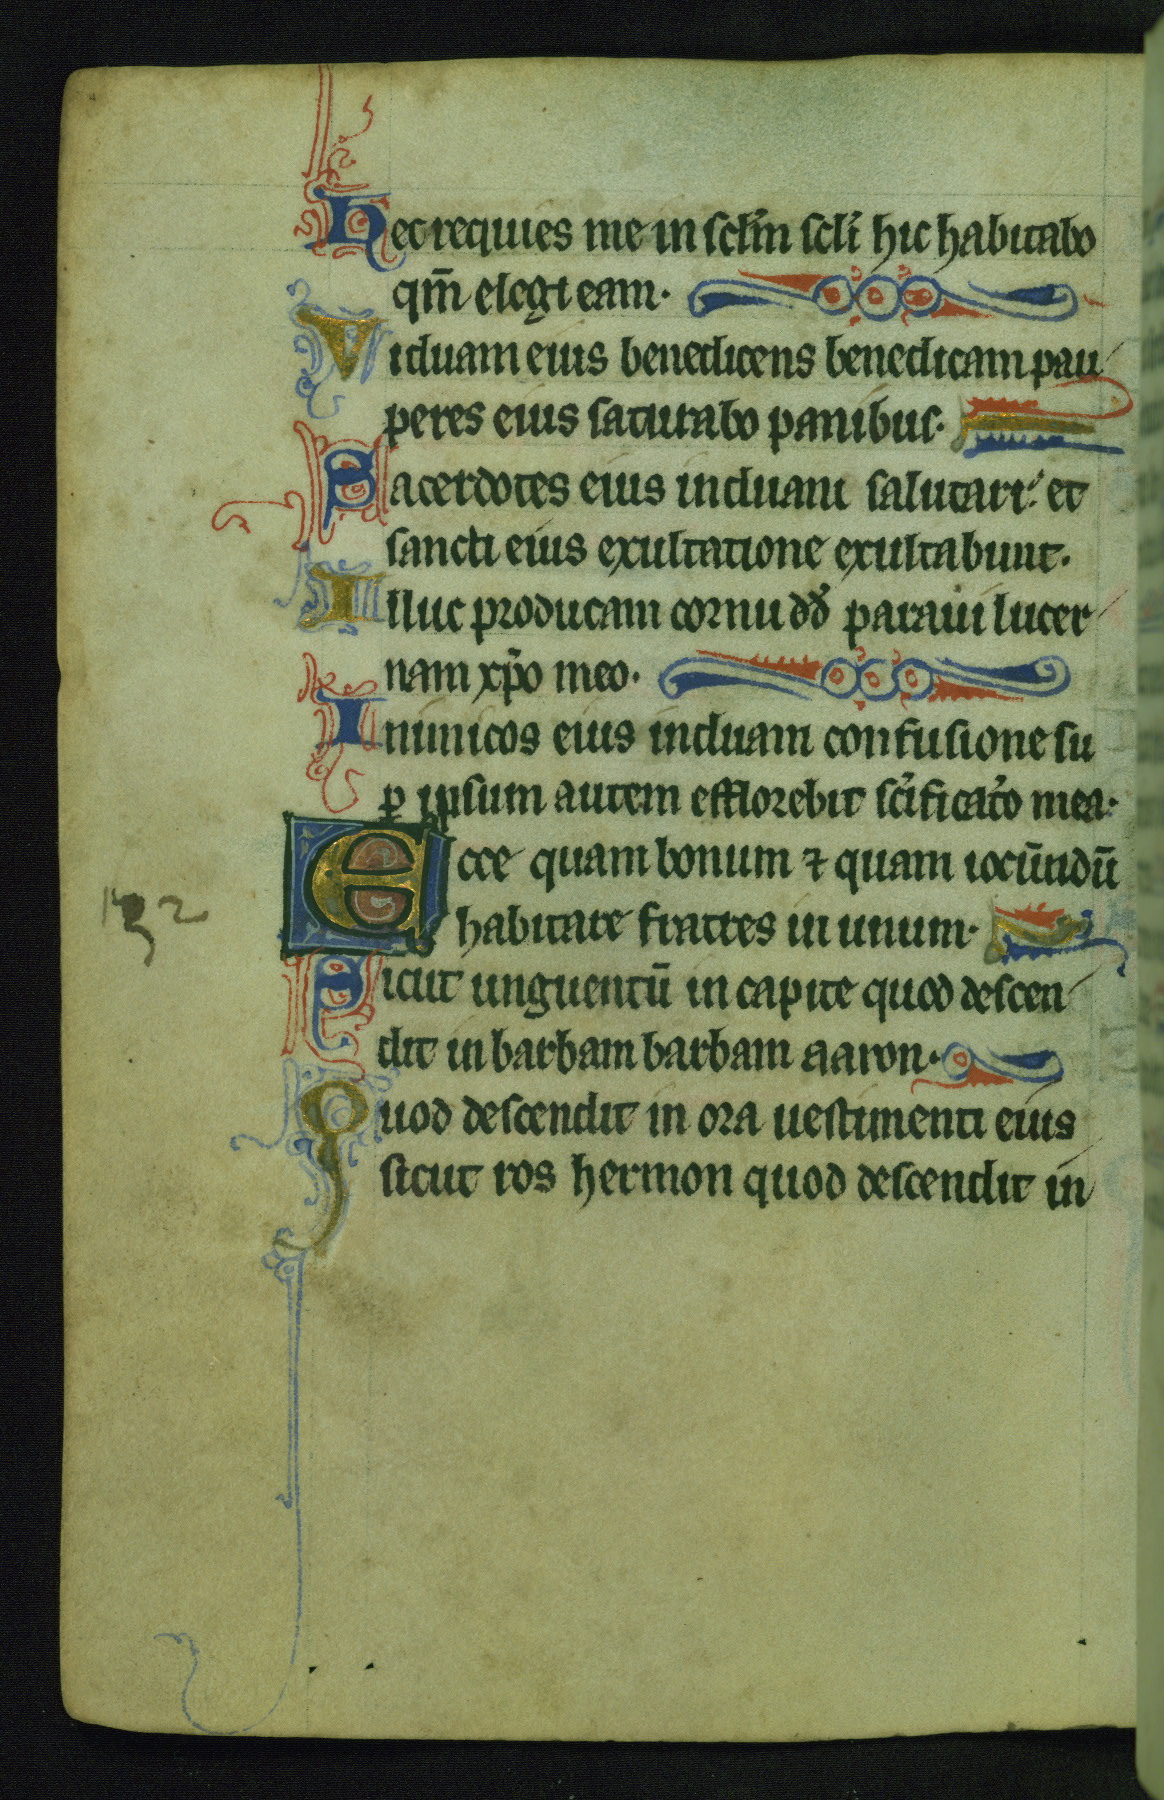 Hec requies mea in sclm̄ scli hic habitabo
qm̄ elegi eam.
Viduam eius benedicens benedicam pau
peres eius saturabo panibus.
Sacerdotes eius induam salutari: et
sancti eius exultatione exultabunt.
Illuc producam cornu dd̄ paraui lucer
nam xp̄o meo.
Inimicos eius induam confusione su
ꝑ ipsum autem efflorebit sc̄ificatio mea.
Ecce quam bonum ⁊ quam iocūndū
habitare fratres in unum.
Sicut unguentū in capite quod descen
dit in barbam barbam aaron.
Quod descendit in ora uestimenti eius
sicut ros hermon quod descendit in
132